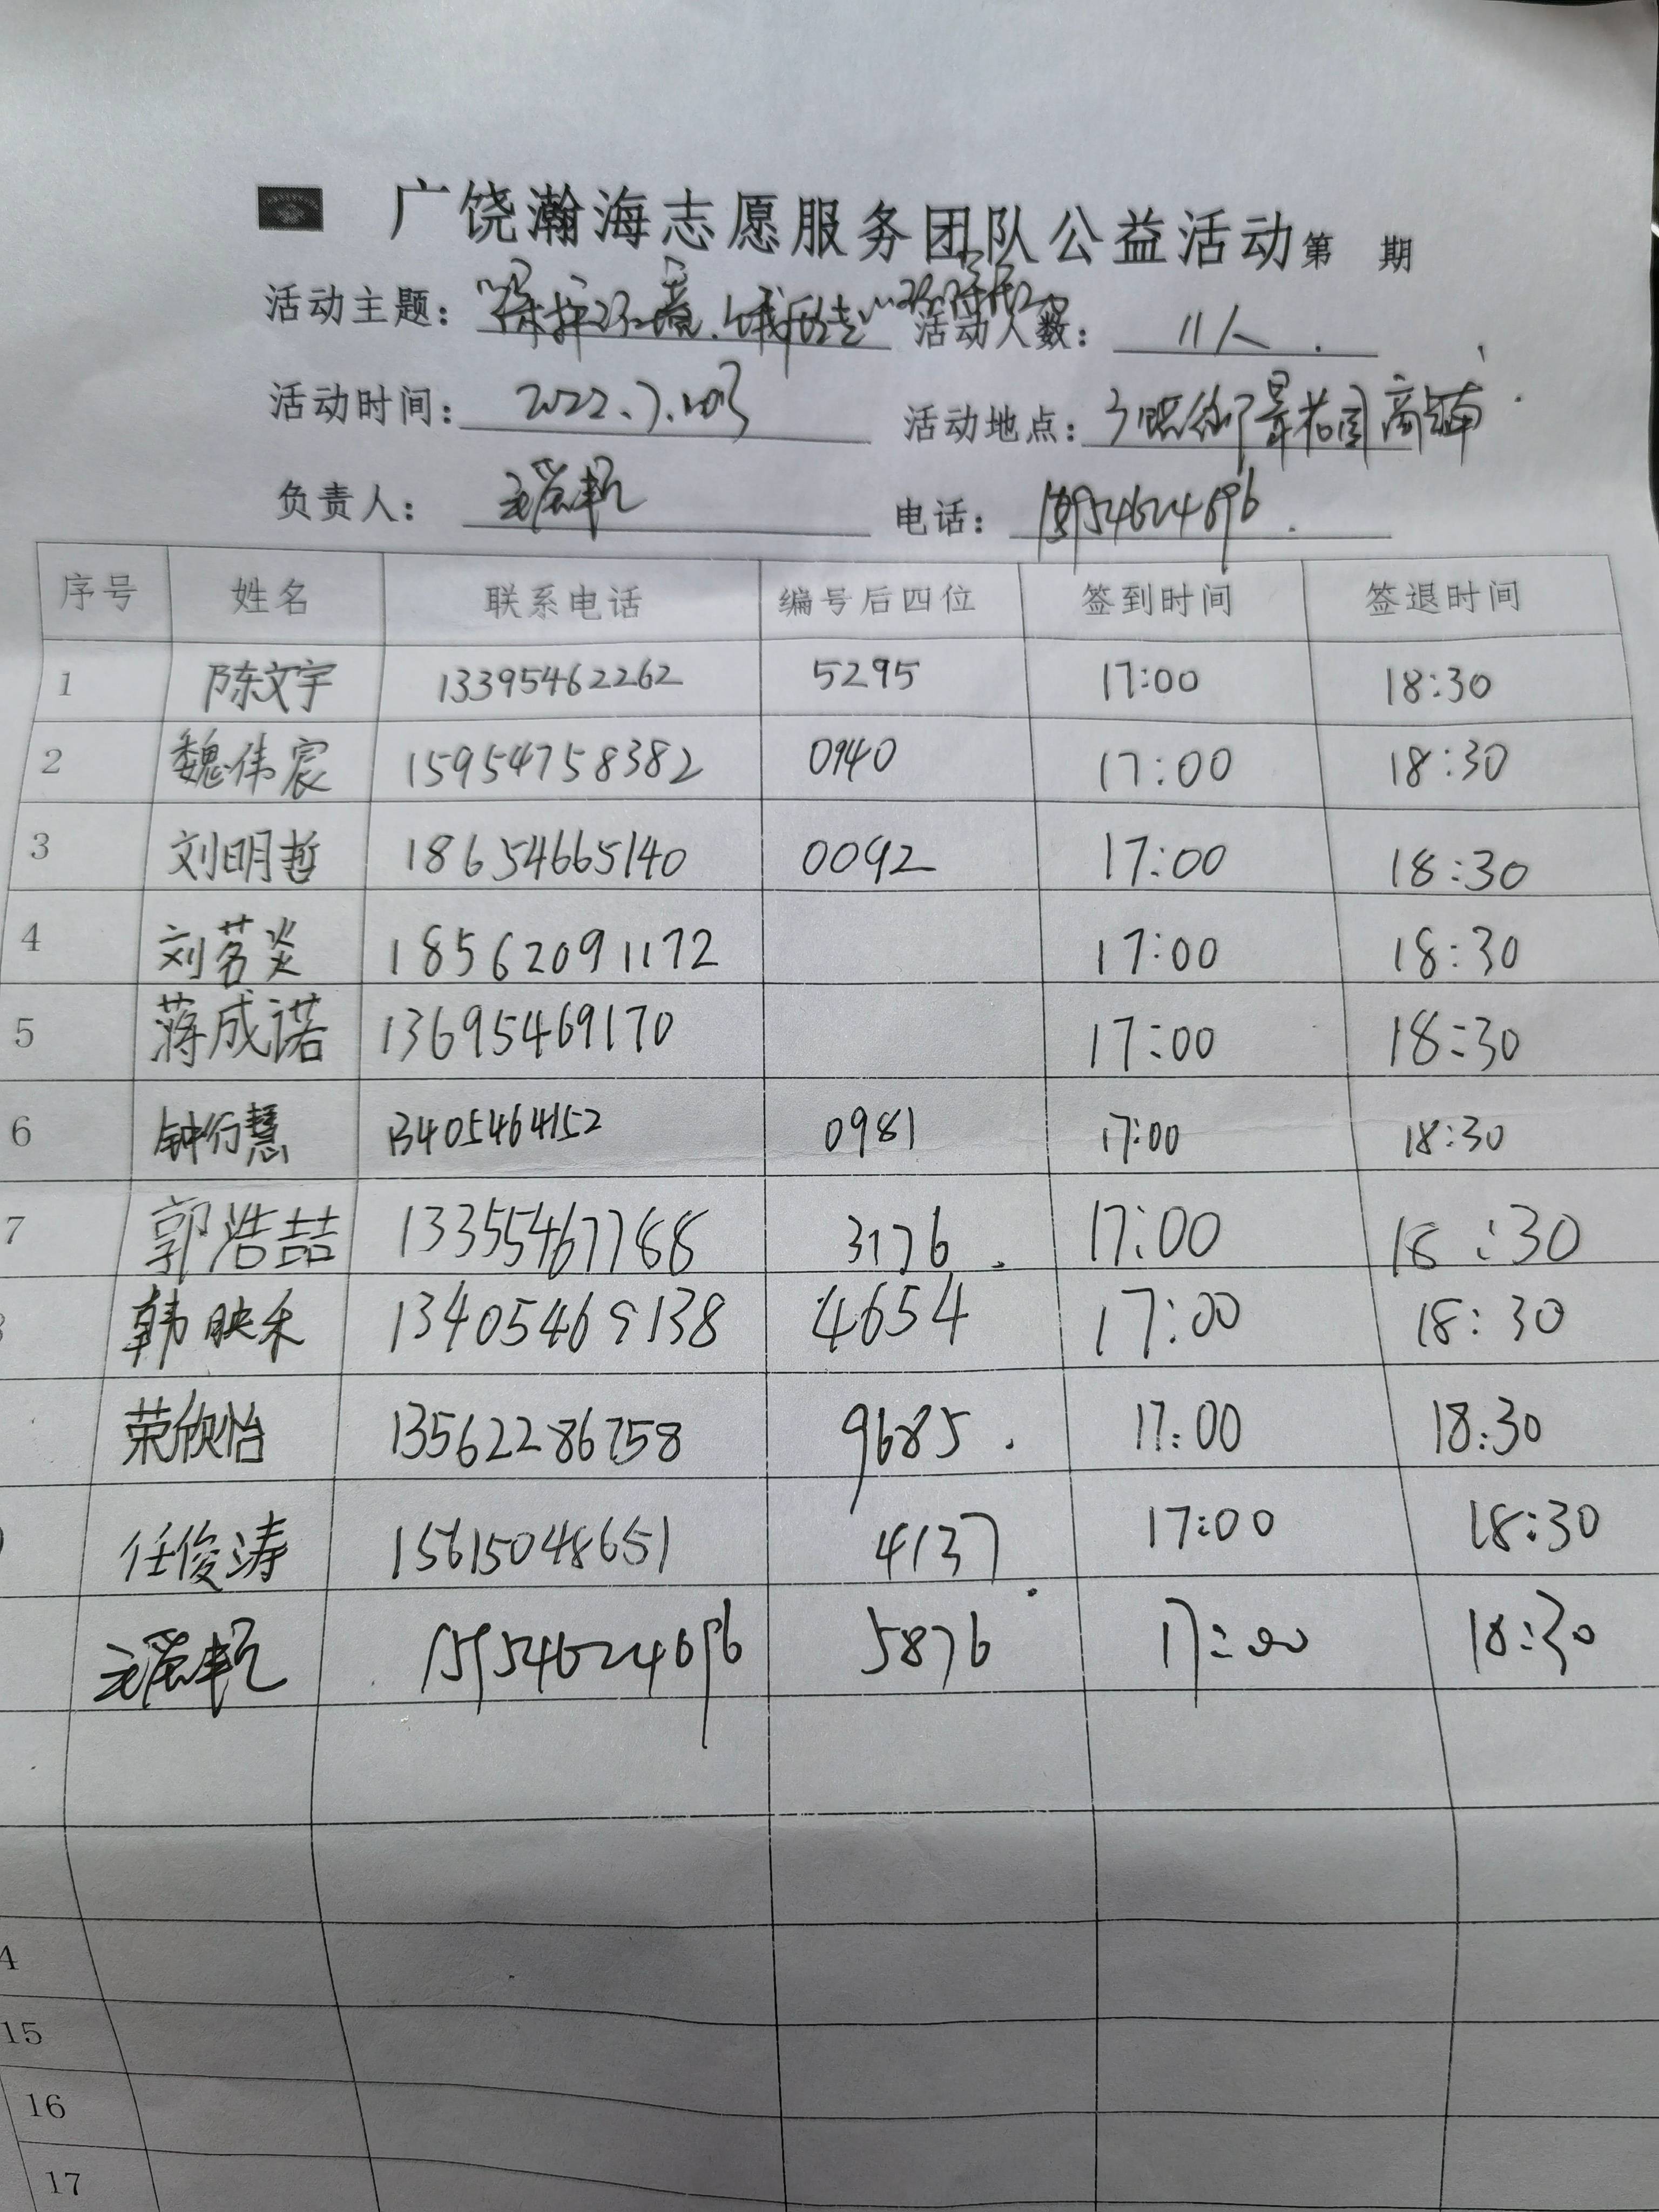 广饶瀚海志愿服务团队公益活动第 期
活动主题："保护环境.从我做起" 活动人数： 11人.
活动时间： 2022.7. 活动地点： 景花园
负责人： 电话：
序号 姓名 联系电话 编号后四位 签到时间 签退时间
1 陈文宇 13395462262 5295 17:00 18:30
2 魏伟宸 15954758382 0940 17:00 18:30
3 刘明哲 18654665140 0092 17:00 18:30
4 刘茗炎 18562091172 17:00 18:30
5 蒋成诺 13695469170 17:00 18:30
6 钟行慧 13405464152 0981 17:00 18:30
7 郭浩喆 13355467788 3176. 17:00 18:30
韩映禾 13405469138 4654 17:00 18:30
荣欣怡 13562286758 9685. 17:00 18:30
任俊涛 15615048651 4137. 17:00 18:30
15954624696 5876 17:00 18:30
4
15
16
17